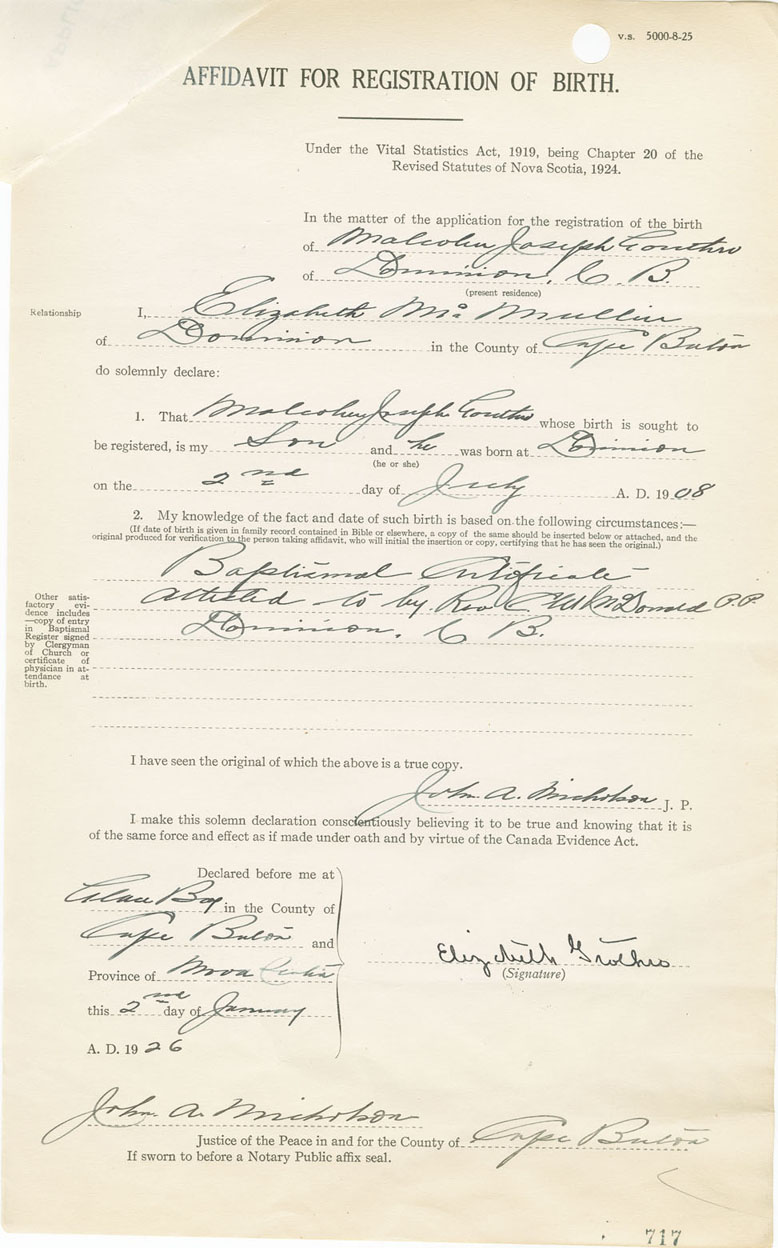 v.s. 5000-8-25
AFFIDAVIT FOR REGISTRATION OF BIRTH.
Under the Vital Statistics Act, 1919, being Chapter 20 of the
Revised Statutes of Nova Scotia, 1924.
In the matter of the application for the registration of the birth
of Malcolm Joseph Gouthro
of Dominion, C. B.
(present residence)
Relationship I, Elizabeth Mc Mullin
of Dominion in the County of Cape Breton
do solemnly declare:
1. That Malcolm Joseph Gouthro whose birth is sought to
be registered, is my Son and he was born at Dominion
(he or she)
on the 2nd day of July A. D. 1908
2. My knowledge of the fact and date of such birth is based on the following circumstances:—
(If date of birth is given in family record contained in Bible or elsewhere, a copy of the same should be inserted below or attached, and the
original produced for verification to the person taking affidavit, who will initial the insertion or copy, certifying that he has seen the original.)
Baptismal Certificate
attested to by Rev McDonald P.P.
Dominion, C B.
Other satis-
factory evi-
dence includes
—copy of entry
in Baptismal
Register signed
by Clergyman
of Church or
certificate of
physician in at-
tendance at
birth.
I have seen the original of which the above is a true copy.
John A. Nicholson J. P.
I make this solemn declaration conscientiously believing it to be true and knowing that it is
of the same force and effect as if made under oath and by virtue of the Canada Evidence Act.
Declared before me at
Glace Bay in the County of
Cape Breton and
Province of Nova Scotia
this 2nd day of January
A. D. 1926
Elizabeth Gothro
(Signature)
John A. Nicholson
Justice of the Peace in and for the County of Cape Breton
If sworn to before a Notary Public affix seal.
717